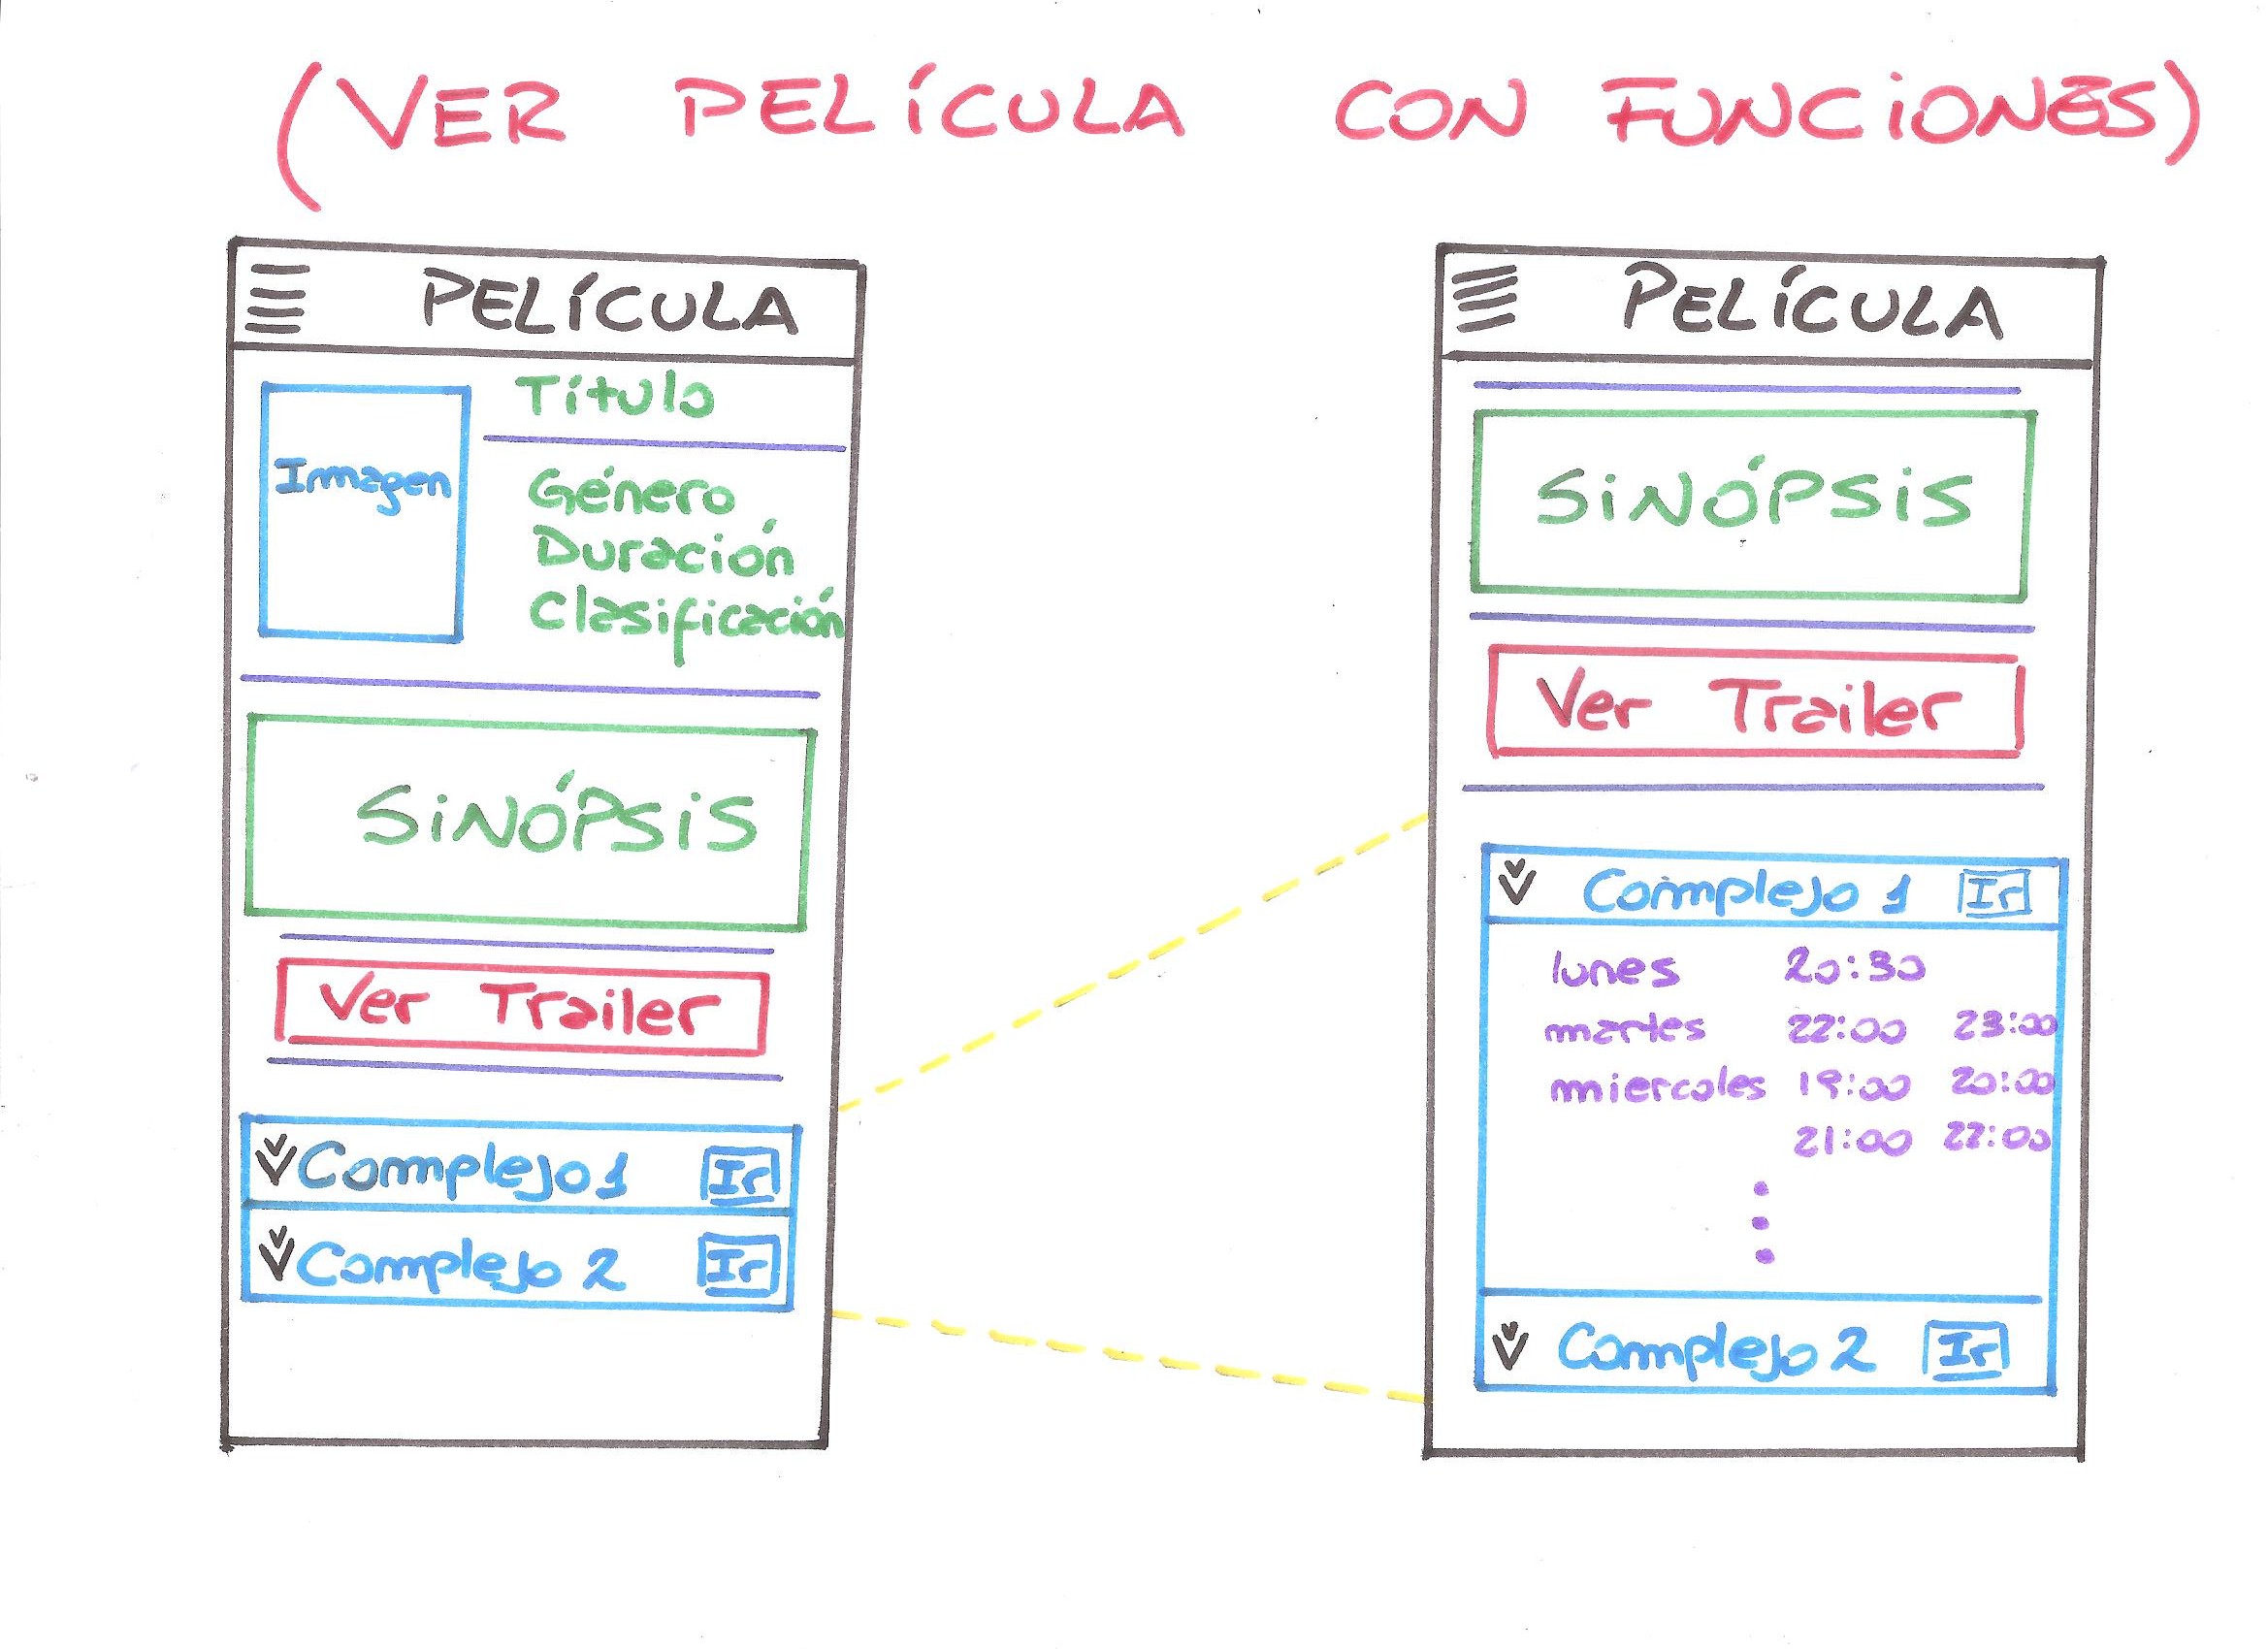 (VER PELÍCULA CON FUNCIONES)
PELÍCULA
Título
Imagen
Género
Duración
Clasificación
SiNÓPSiS
Ver Trailer
Complejo 1 Ir
Complejo 2 Ir
PELÍCULA
SiNÓPSiS
Ver Trailer
Complejo 1 Ir
lunes 20:30
martes 22:00 23:00
miercoles 19:00 20:00
21:00 22:00
Complejo 2 Ir